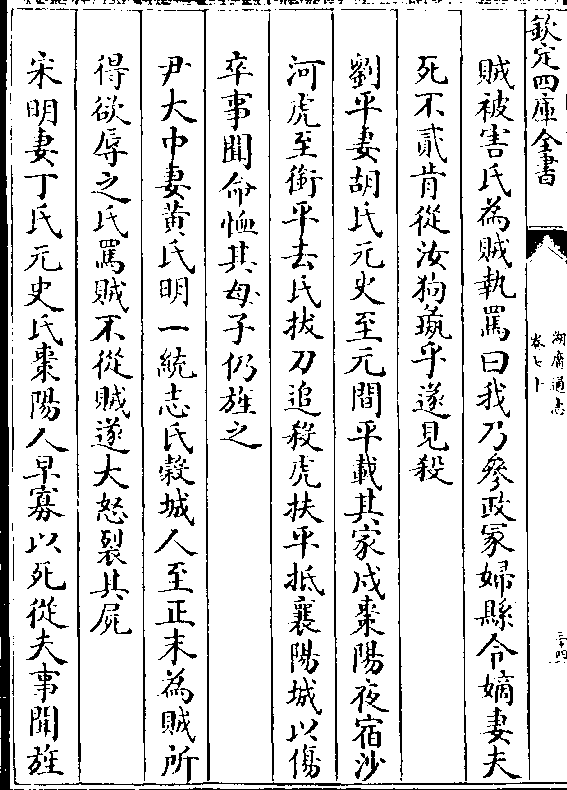 欽定四庫全書
湖廣通志
卷七十
三十四
賊被害氏為賊執罵曰我乃參政冢婦縣令嫡妻夫
死不貳肯從汝狗彘乎遂見殺
劉平妻胡氏元史至元間平載其家戍棗陽夜宿沙
河虎至銜平去氏拔刀追殺虎扶平抵襄陽城以傷
卒事聞命恤其母子仍旌之
尹大中妻黄氏明一統志氏榖城人至正末為賊所
得欲辱之氏罵賊不從賊遂大怒裂其屍
宋明妻丁氏元史氏棗陽人早寡以死從夫事聞旌